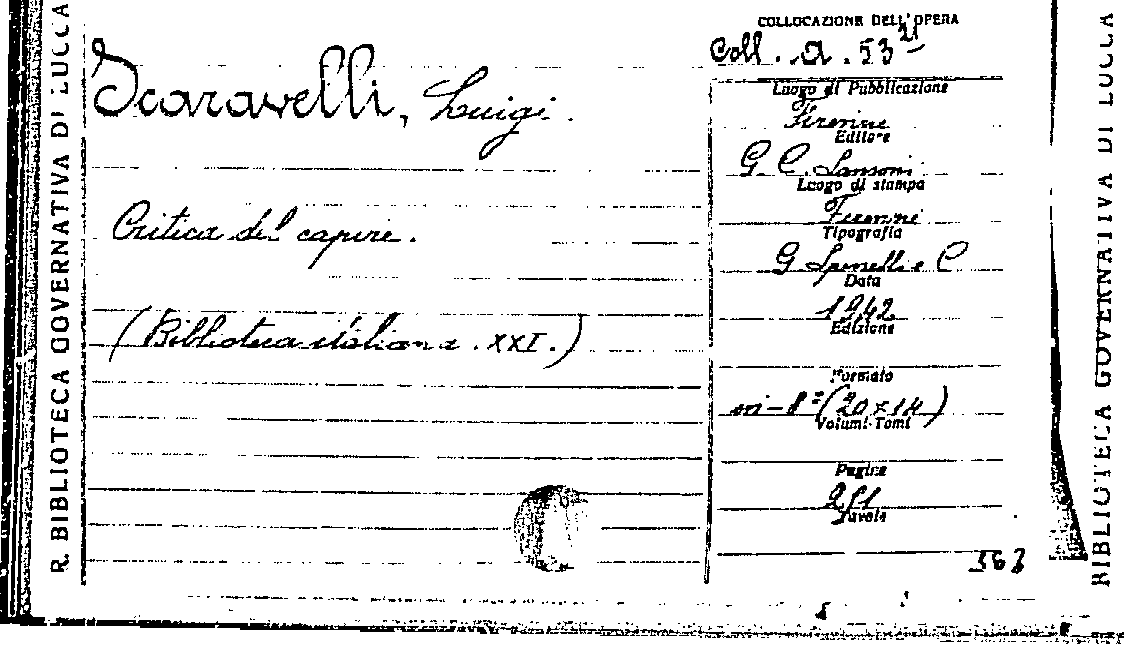 R. BIBLIOTECA GOVERNATIVA DI LUCCA
Scaravelli, Luigi.
Critica del capire.
(Biblioteca italiana. XXI.)
COLLOCAZIONE DELL'OPERA
Coll. A. 53 21
Luogo di Pubblicazione
Firenze
Editore
G. C. Sansoni
Luogo di stampa
Firenze
Tipografia
G Spinelli e C
Data
1942
Edizione
Formato
in-8º (20x14)
Volumi-Tomi
Pagine
251
Tavole
BIBLIOTECA GOVERNATIVA DI LUCCA